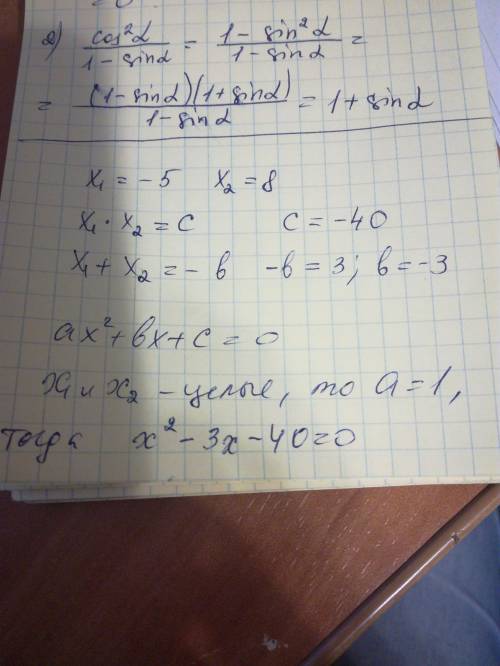 2) cos²α / 1 - sinα = 1 - sin²α / 1 - sinα =
= (1 - sinα)(1 + sinα) / 1 - sinα = 1 + sinα
x₁ = -5 x₂ = 8
x₁ · x₂ = c c = -40
x₁ + x₂ = - в -в = 3; в = -3
ax² + вx + c = 0
x₁ и x₂ - целые, то a = 1,
тогда x² - 3x - 40 = 0